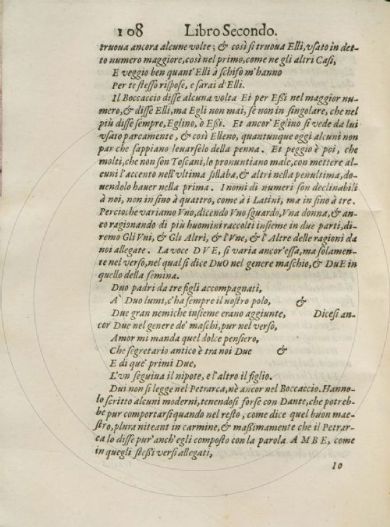 108 Libro Secondo.
truoua ancora alcune volte, & così si truoua Elli, vsato in det-
to numero maggiore, così nel primo, come ne gli altri Casi,
E veggio ben quant'Elli à schifo m'hanno
Per te stesso rispose, e sarai d'Elli.
Il Boccaccio disse alcuna volta Ei per Essi nel maggior nu-
mero, & disse Elli, ma Egli non mai, se non in singolare, che nel
più disse sempre, Eglino, ò Essi. Et ancor'Eglino si vede da lui
vsato parcamente, & così Elleno, quantunque oggi alcuni non
par che sappiano leuarselo della penna. Et peggio è poi, che
molti, che non son Toscani, lo pronuntiano male, con mettere al-
cuni l'accento nell'vltima sillaba, & altri nella penultima, do-
uendolo hauer nella prima. I nomi di numeri son declinabili
à noi, non in sino à quattro, come à i Latini, ma in sino à tre.
Percioche variamo Vno, dicendo Vno sguardo, Vna donna, & an-
co ragionando di più huomini raccolti insieme in due parti, di-
remo Gli Vni, & Gli Altri, & l'Vne, & l'Altre delle ragioni da
noi allegate. La voce DVE, si varia ancor'essa, ma solamen-
te nel verso, nel qual si dice DuO nel genere maschio, & DuE in
quello della femina.
Duo padri da tre figli accompagnati,
A' Duo lumi, c'ha sempre il nostro polo, &
Due gran nemiche insieme erano aggiunte, Dicesi an-
cor Due nel genere de' maschi, pur nel verso,
Amor mi manda quel dolce pensero,
Che segretario antico è tra noi Due &
E di que' primi Due,
L'vn seguiua il nipote, e l'altro il figlio.
Dui non si legge nel Petrarca, nè ancor nel Boccaccio. Hanno-
lo scritto alcuni moderni, tenendosi forse con Dante, che potreb-
be pur comportarsi quando nel resto, come dice quel buon mae-
stro, plura niteant in carmine, & massimamente che il Petrar-
ca lo disse pur'anch'egli composto con la parola AMBE, come
in quegli stessi versi allegati,
10